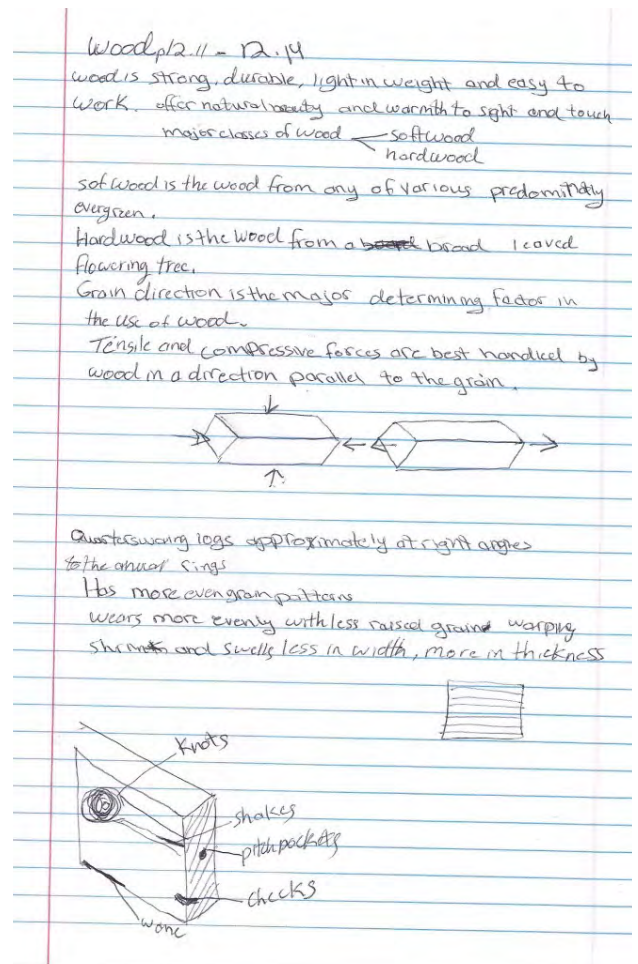 wood p12.11 - 12.14
wood is strong, durable, light in weight and easy to
work. offer natural beauty and warmth to sight and touch
major classes of wood softwood
hardwood
sofwood is the wood from any of various predominatly
evergreen.
Hardwood is the wood from a broad leaved
flowering tree.
Grain direction is the major determining factor in
the use of wood.
Tensile and compressive forces are best handled by
wood in a direction parallel to the grain.
logs approximately at right angles
to the annual rings
Has more even grain patterns
wears more evenly with less raised grain warping
and swells less in width, more in thickness
Knots
shakes
pitch pockets
checks
wane